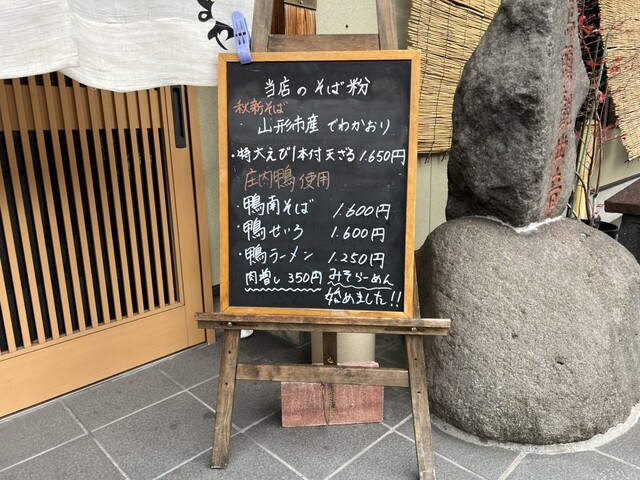 当店のそば粉
秋新そば
山形市産 でわかおり
・特大えび1本付天ざる 1.650円
庄内鴨使用
・鴨南そば 1.600円
・鴨せいろ 1.600円
・鴨ラーメン 1.250円
肉増し 350円 みそらーめん
始めました!!